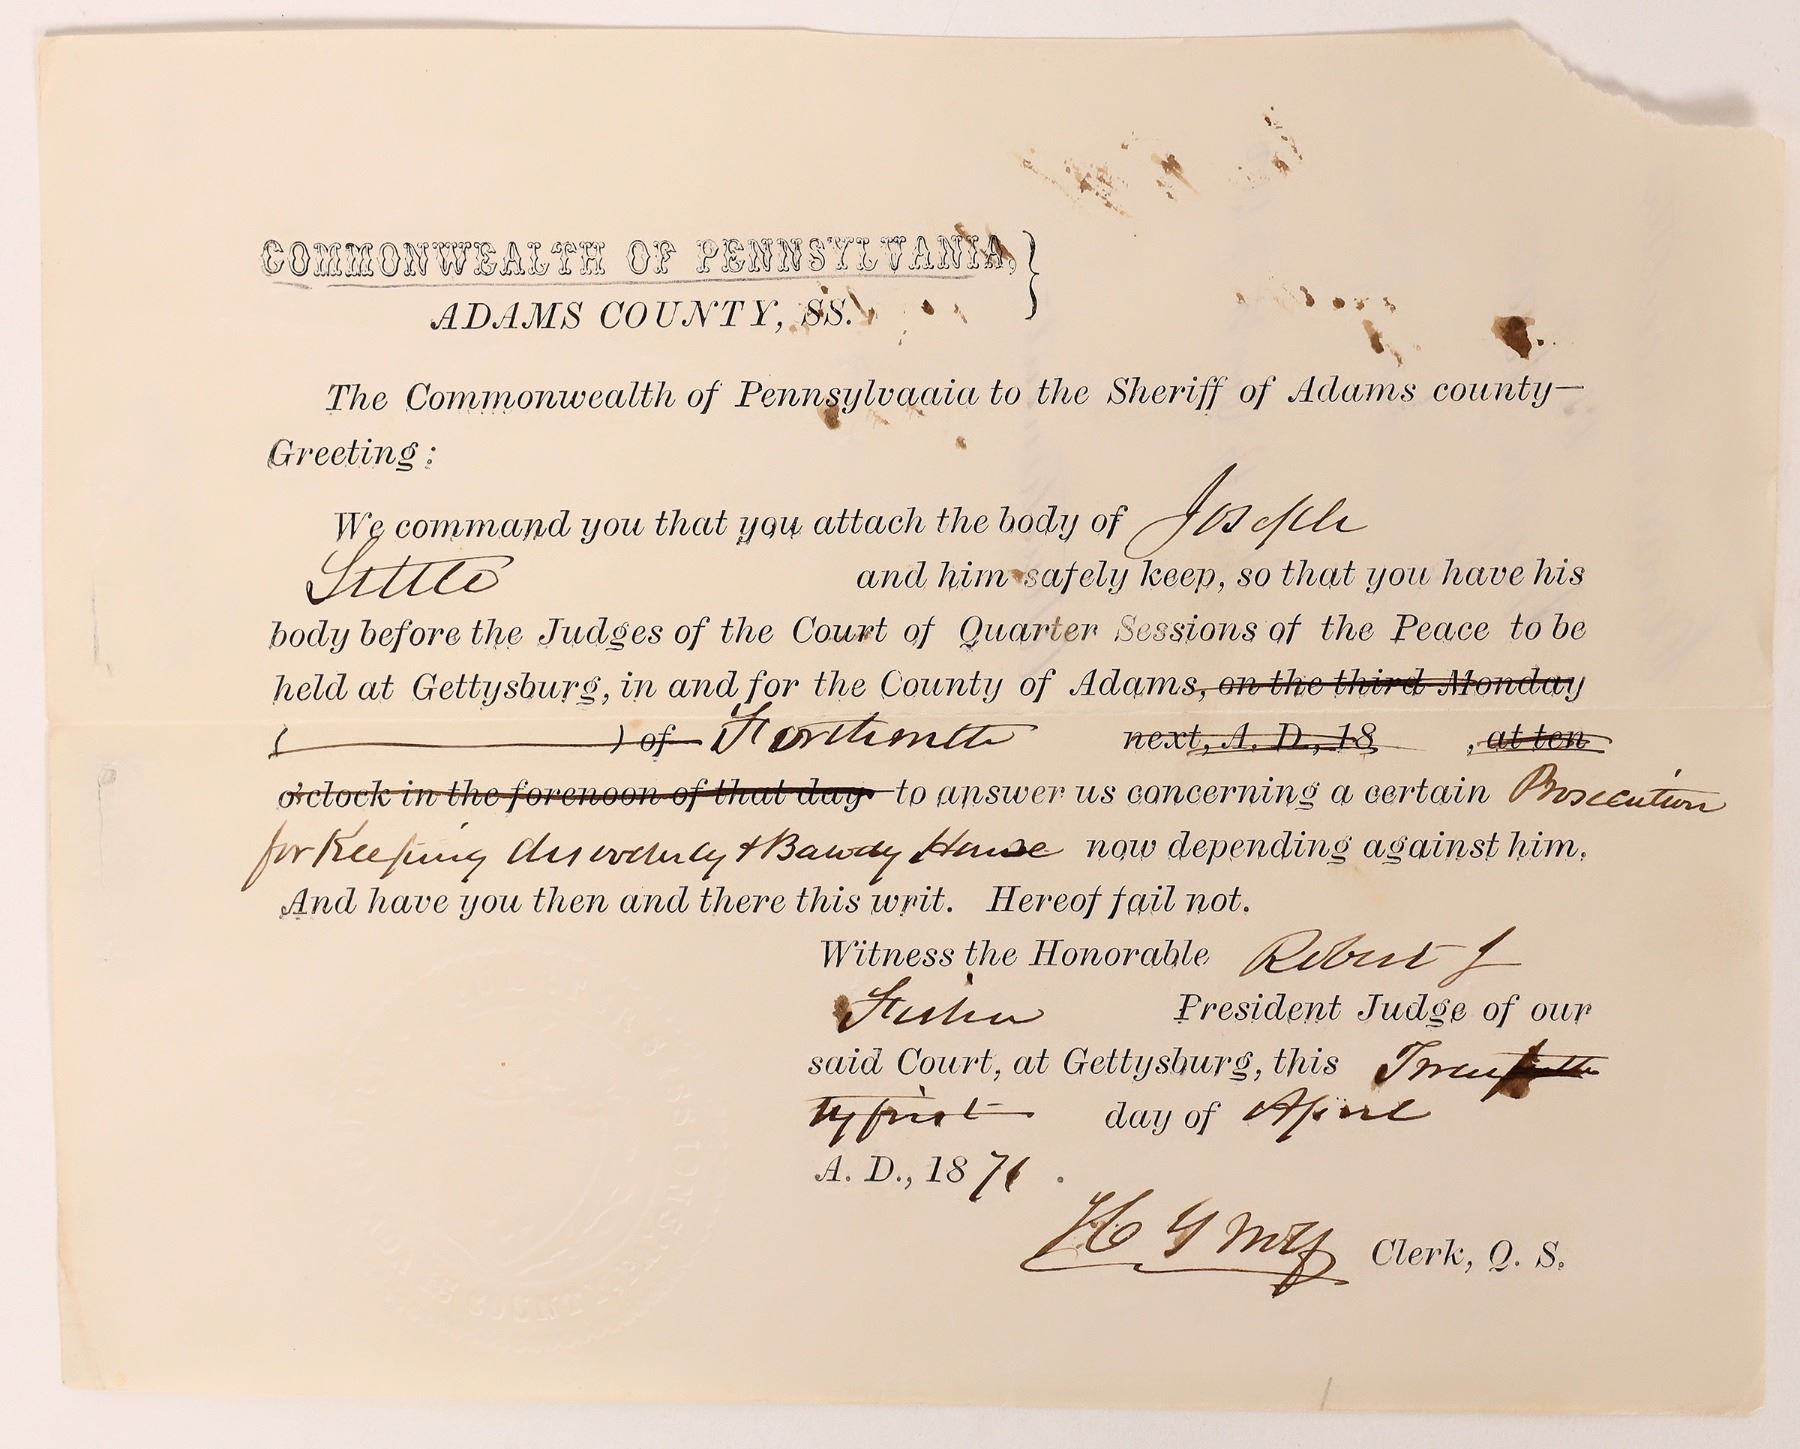 COMMONWEALTH OF PENNSYLVANIA,
ADAMS COUNTY, SS.
The Commonwealth of Pennsylvaaia to the Sheriff of Adams county—
Greeting:
We command you that you attach the body of Joseph
Little and him safely keep, so that you have his
body before the Judges of the Court of Quarter Sessions of the Peace to be
held at Gettysburg, in and for the County of Adams, on the third Monday
( ) of Forthwith next, A. D., 18 , at ten
o'clock in the forenoon of that day to answer us concerning a certain Prosecution
for Keeping disorderly & Bawdy House now depending against him.
And have you then and there this writ. Hereof fail not.
Witness the Honorable Robert J
Fisher President Judge of our
said Court, at Gettysburg, this Twen
ty first day of April
A. D., 1871.
Clerk, Q. S.